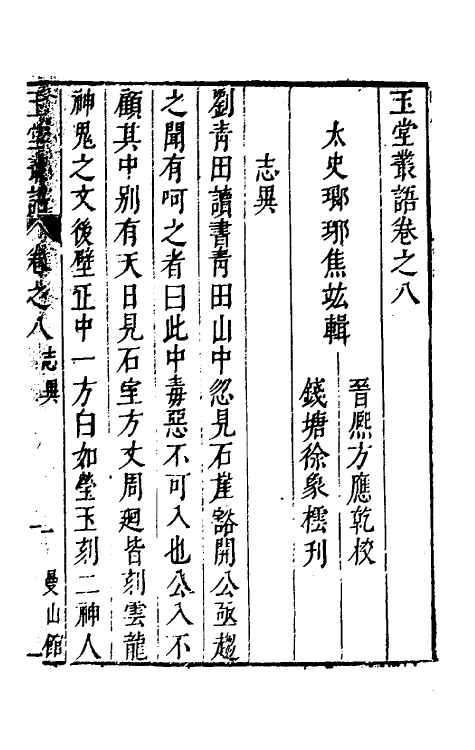 玉堂叢語卷之八
太史瑯琊焦竑輯
晉熙方應乾校
錢塘徐象橒刊
志異
劉青田讀書青田山中忽見石崖豁開公亟趨
之聞有呵之者曰此中毒惡不可入也公入不
顧其中别有天日見石室方丈周廻皆刻雲龍
神鬼之文後壁正中一方白如瑩玉刻二神人
玉堂叢語 卷之八 志異 一 曼山館